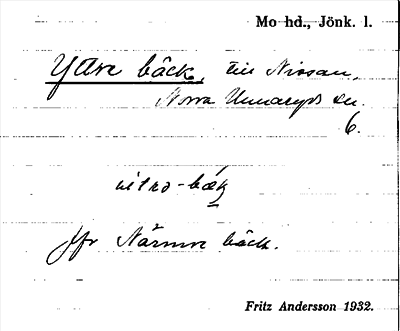 Mo hd., Jönk. l.
Yttre bäck, till Nissan,
Norra Unnaryds sn.
6.
itro-bæk
jfr Närmre bäck.
Fritz Andersson 1932.